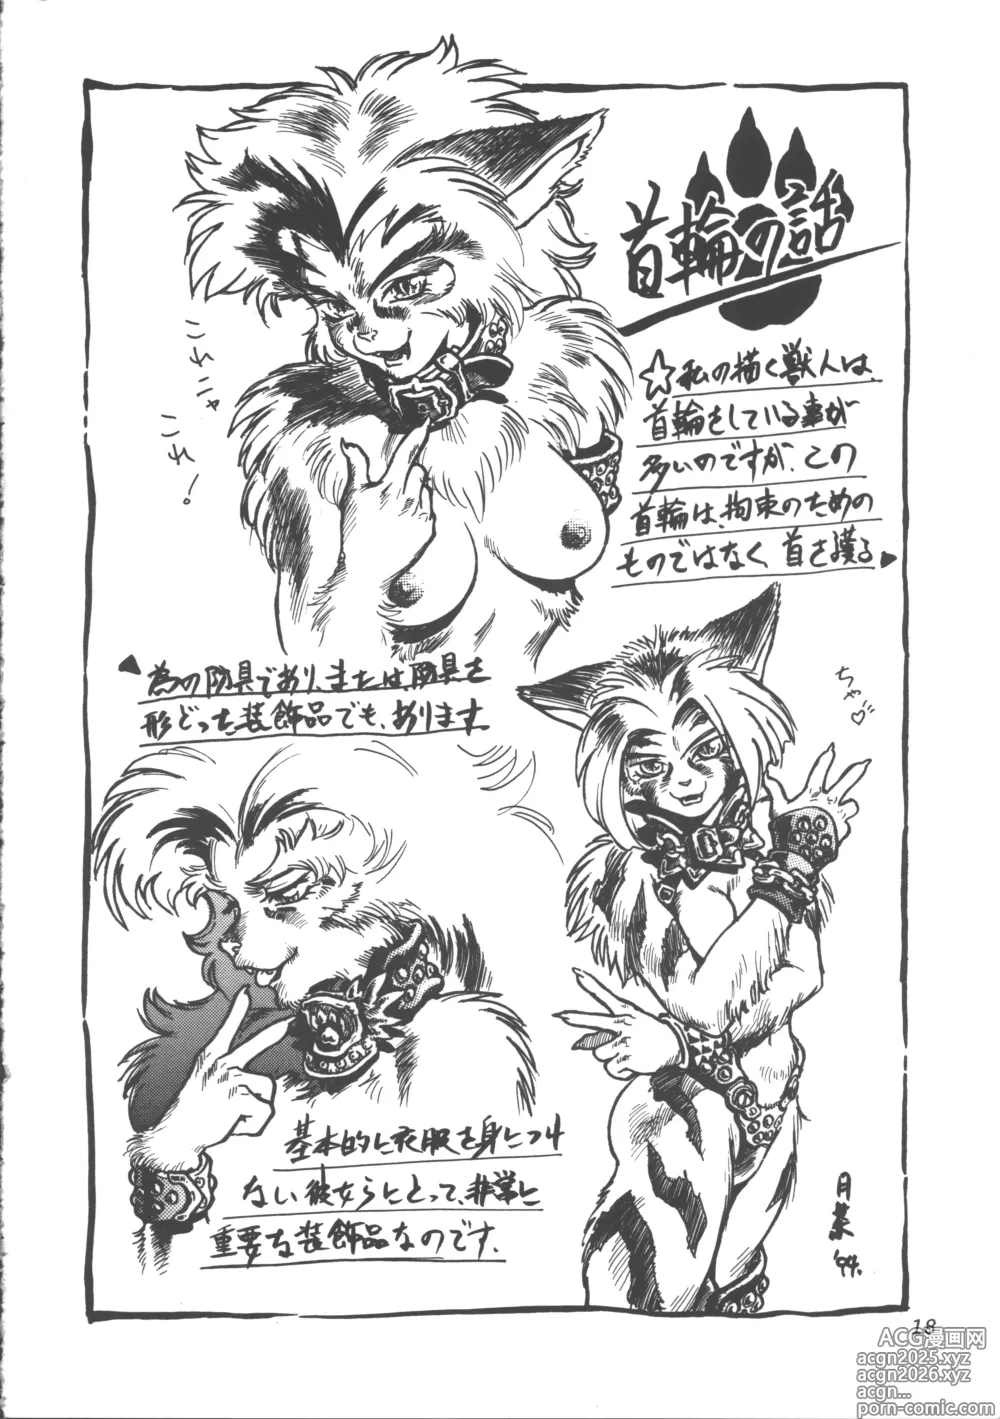 首輪の話
☆私の描く獣人は、
首輪をしている事が
多いのですが、この
首輪は、拘束のための
ものではなく、首を護る
為の防具であり、または、防具を
形どった装飾品でも、あります。
コチニャ
コチ!
ちゃ♡
基本的に衣服を身につけ
ない彼女らにとって、非常に
重要な装飾品なのです。
'94.
18
ACG漫画网
acgn2025.xyz
acgn2026.xyz
acgn...
porn-comic.com